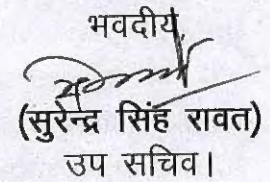 भवदीय,
(सुरेन्द्र सिंह रावत)
उप सचिव।